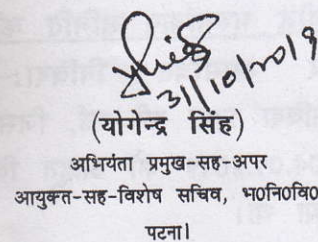 31/10/2019
(योगेन्द्र सिंह)
अभियंता प्रमुख-सह-अपर
आयुक्त-सह-विशेष सचिव, भ0नि0वि0
पटना।